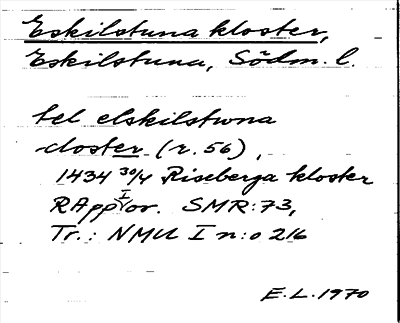 Eskilstuna kloster,
Eskilstuna, Södm. l.
tel elskilstwna
closter (r. 56),
1434 30/4 Riseberga kloster
RApp I or. SMR:73,
Tr.: NMU I n:o 216
E.L. 1970